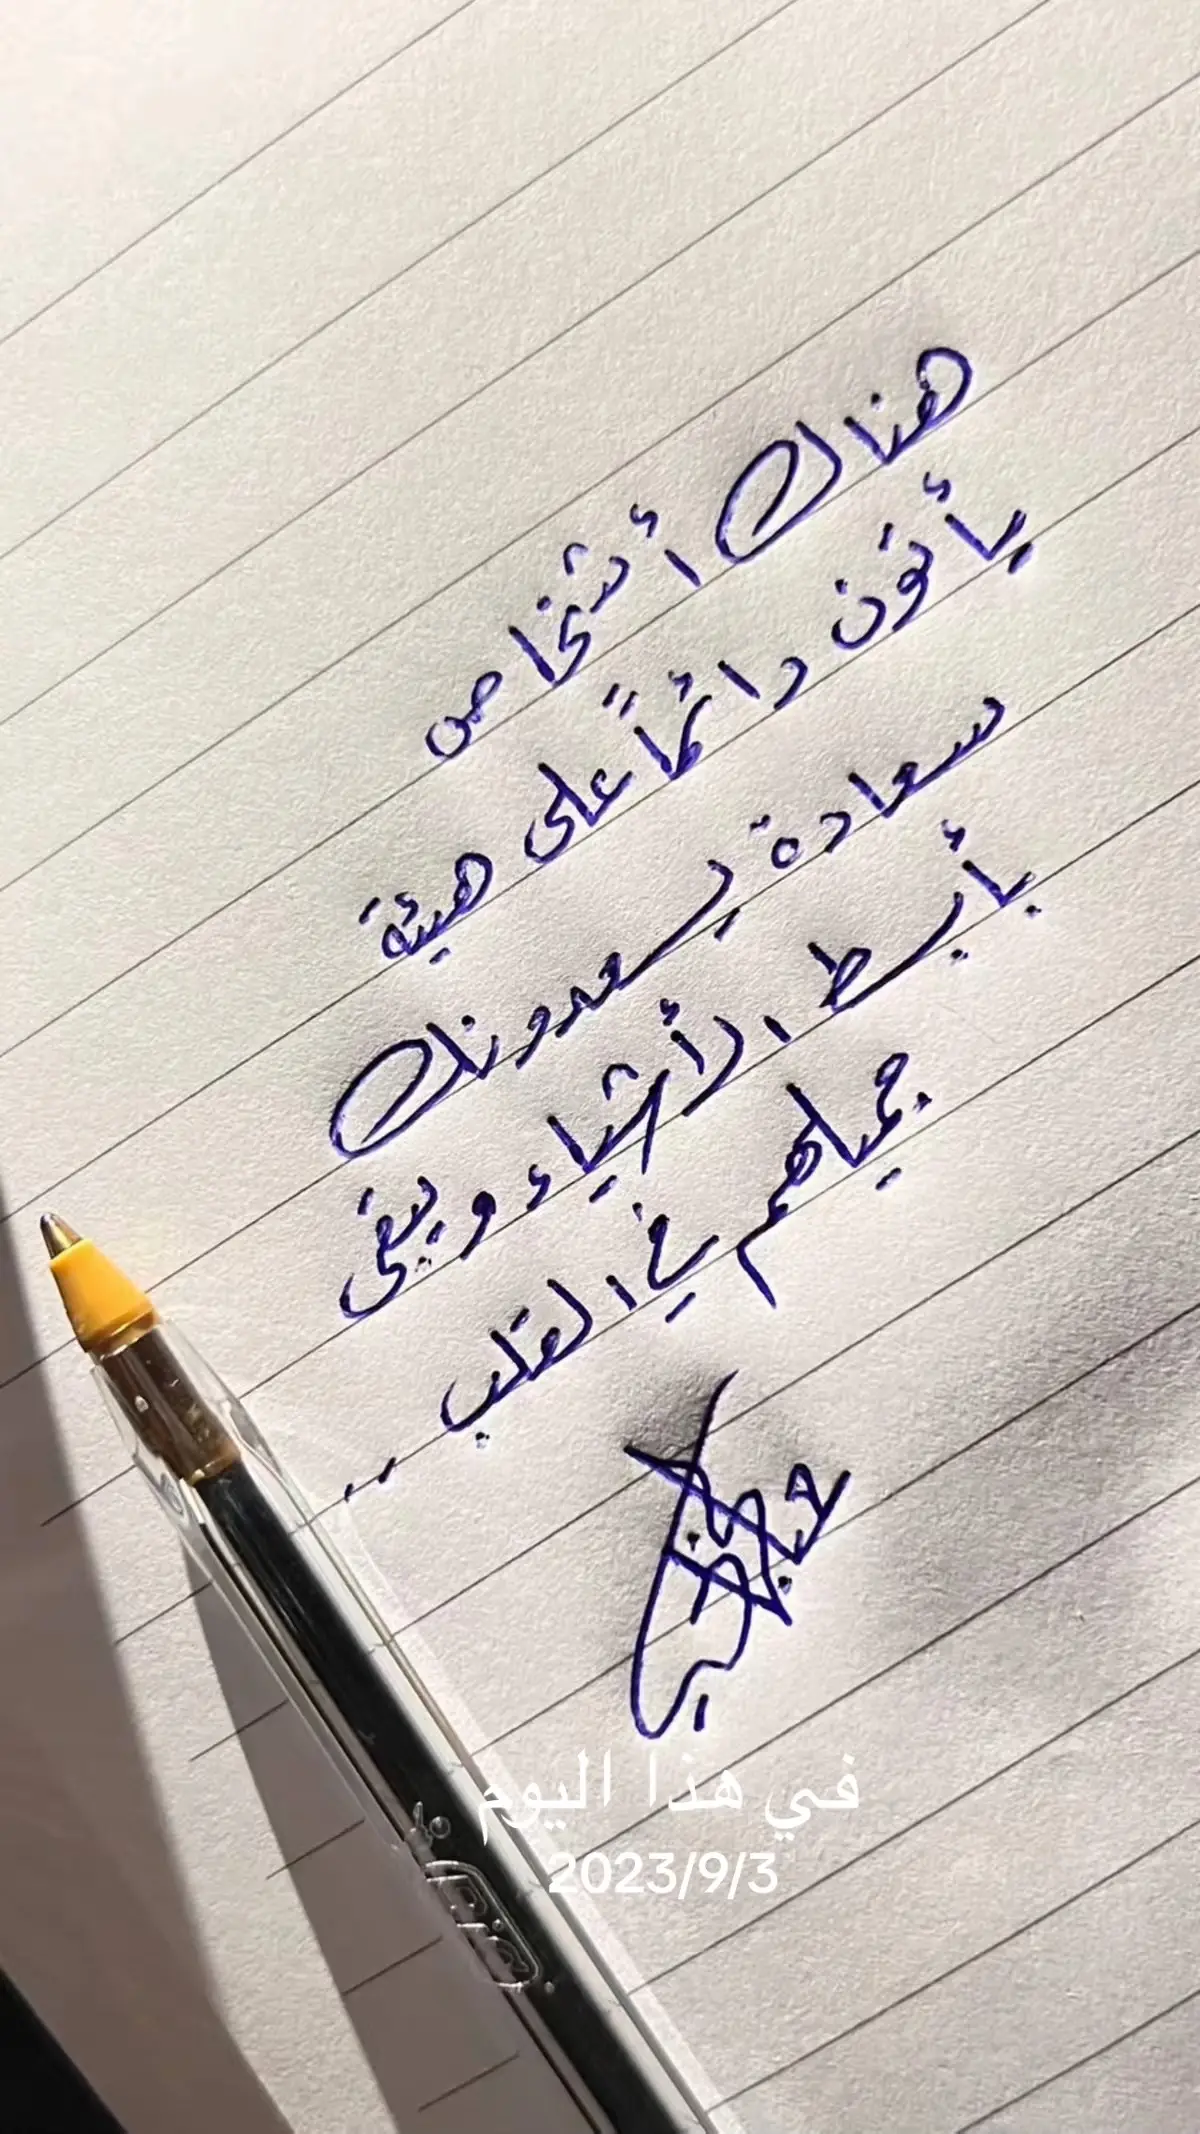 هناك أشخاص
يأتون دائماً على هيئة
سعادة يسعدونك
بأبسط الأشياء ويبقى
جمالهم في القلب ..
في هذا اليوم
2023/9/3
BiC